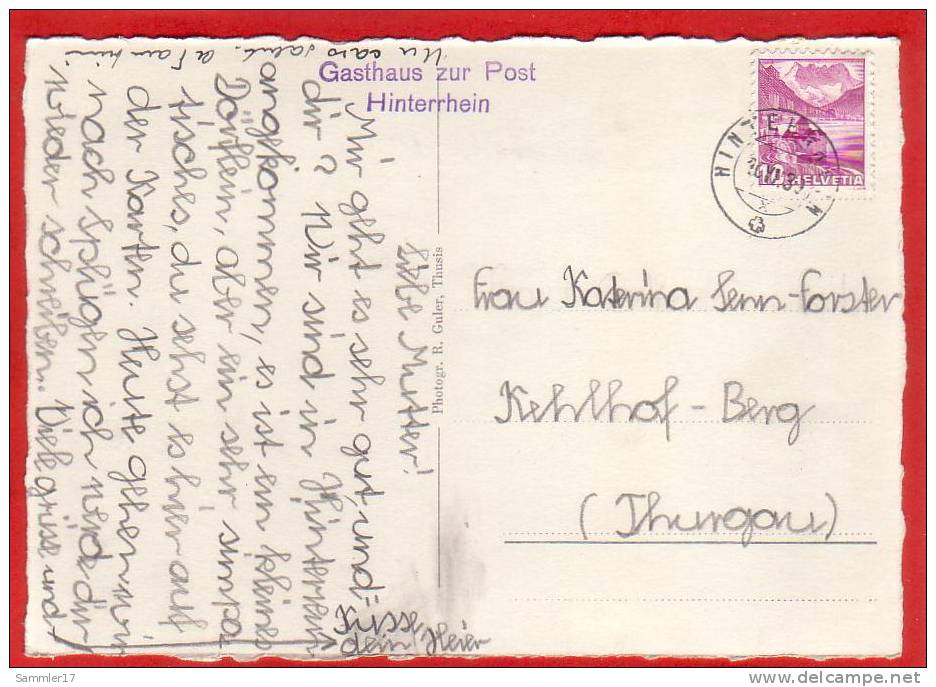 Gasthaus zur Post
Hinterrhein
HELVETIA
Photogr. R. Guler, Thusis
Liebe Mutter!
Mir geht es sehr gut, und
dir? Wir sind in Hinterrein
angkommen, es ist ein kleines
Dörflein, aber ein sehr simpa
tisches, du sehst es hier auf
der Karten. Heute gehen wir
nach Splügen ich werde dir
wieder schreiben. Viele grüse und
Küsse,
dein Heier
caro
Frau Katerina Senn-Forster
Kehlhof-Berg
(Thurgau)
Sammler17
www.delcampe.net